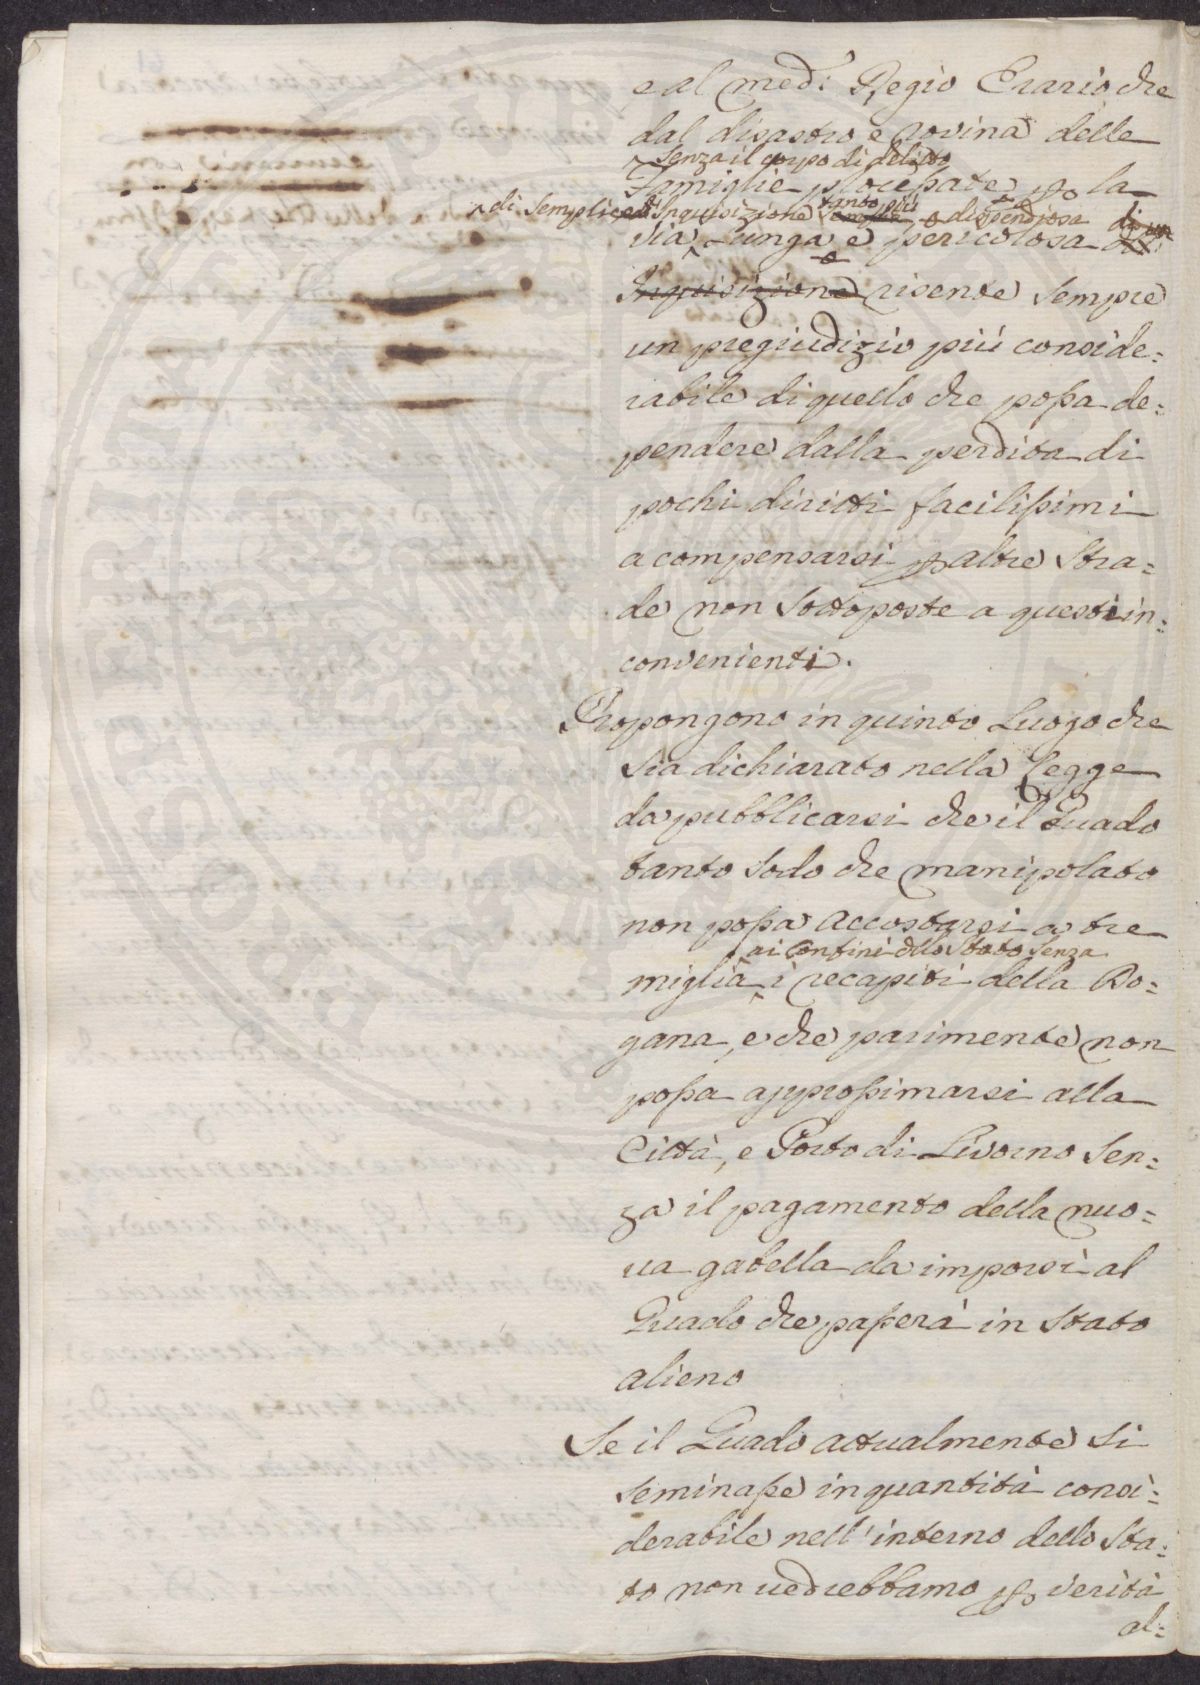 e al med:º Regio Erario che
dal disastro e rovina delle
senza il corpo di delitto
Famiglie processate per la
di semplice Inquisizione tanto più dispendiosa
via lunga e pericolosa di
Inquisizione risente sempre
un pregiudizio più conside=
rabile di quello che possa de=
pendere dalla perdita di
pochi diritti facilissimi
a compensarsi per altre stra=
de non sottoposte a questi in=
convenienti.
Propongono in quinto luogo che
sia dichiarato nella Legge
da pubblicarsi che il Guado
tanto sodo che manipolato
non possa accostarsi a tre
ai Confini dello Stato senza
miglia i recapiti della Do=
gana, e che parimente non
possa approssimarsi alla
Città, e Porto di Livorno sen=
za il pagamento della nuo=
va gabella da imporsi al
Guado che passerà in stato
alieno
Se il Guado attualmente si
seminasse in quantità consi=
derabile nell'interno dello Sta=
to non vedrebbamo per verità
al=